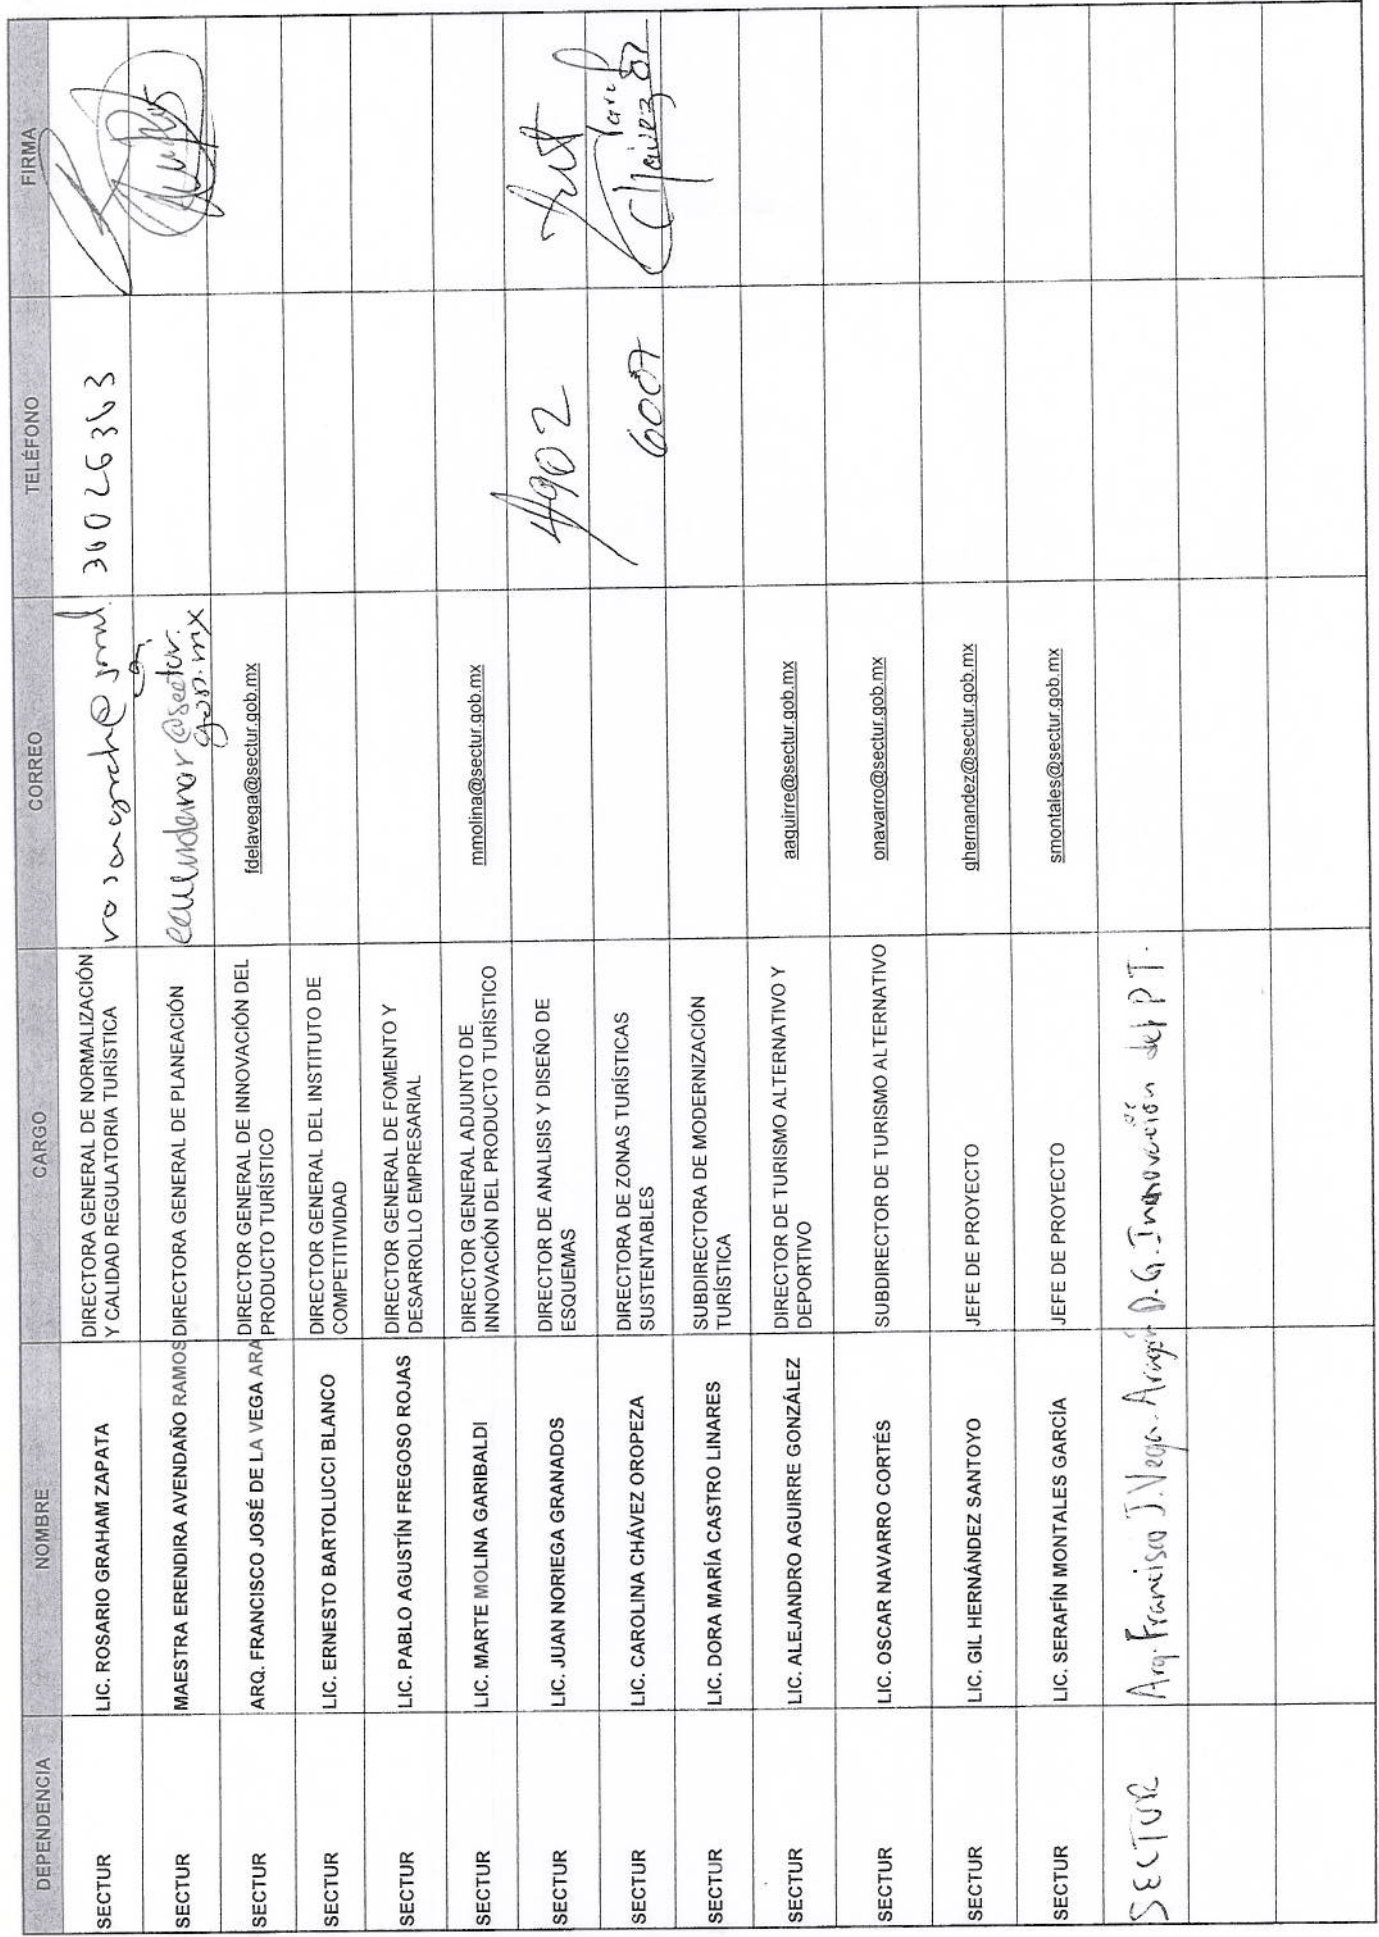 DEPENDENCIA NOMBRE CARGO CORREO TELÉFONO FIRMA
SECTUR LIC. ROSARIO GRAHAM ZAPATA DIRECTORA GENERAL DE NORMALIZACIÓN
Y CALIDAD REGULATORIA TURÍSTICA 30026363
SECTUR MAESTRA ERENDIRA AVENDAÑO RAMOS DIRECTORA GENERAL DE PLANEACIÓN @sectur.
gob.mx
SECTUR ARQ. FRANCISCO JOSÉ DE LA VEGA ARA DIRECTOR GENERAL DE INNOVACIÓN DEL
PRODUCTO TURÍSTICO fdelavega@sectur.gob.mx
SECTUR LIC. ERNESTO BARTOLUCCI BLANCO DIRECTOR GENERAL DEL INSTITUTO DE
COMPETITIVIDAD
SECTUR LIC. PABLO AGUSTÍN FREGOSO ROJAS DIRECTOR GENERAL DE FOMENTO Y
DESARROLLO EMPRESARIAL
SECTUR LIC. MARTE MOLINA GARIBALDI DIRECTOR GENERAL ADJUNTO DE
INNOVACIÓN DEL PRODUCTO TURÍSTICO mmolina@sectur.gob.mx
SECTUR LIC. JUAN NORIEGA GRANADOS DIRECTOR DE ANALISIS Y DISEÑO DE
ESQUEMAS 4902
SECTUR LIC. CAROLINA CHÁVEZ OROPEZA DIRECTORA DE ZONAS TURÍSTICAS
SUSTENTABLES 6007 Chávez
SECTUR LIC. DORA MARÍA CASTRO LINARES SUBDIRECTORA DE MODERNIZACIÓN
TURÍSTICA
SECTUR LIC. ALEJANDRO AGUIRRE GONZÁLEZ DIRECTOR DE TURISMO ALTERNATIVO Y
DEPORTIVO aaguirre@sectur.gob.mx
SECTUR LIC. OSCAR NAVARRO CORTÉS SUBDIRECTOR DE TURISMO ALTERNATIVO onavarro@sectur.gob.mx
SECTUR LIC. GIL HERNÁNDEZ SANTOYO JEFE DE PROYECTO ghernandez@sectur.gob.mx
SECTUR LIC. SERAFÍN MONTALES GARCÍA JEFE DE PROYECTO smontales@sectur.gob.mx
SECTUR Arq. Francisco J. Vega-Aragón D.G. Innovación del PT.